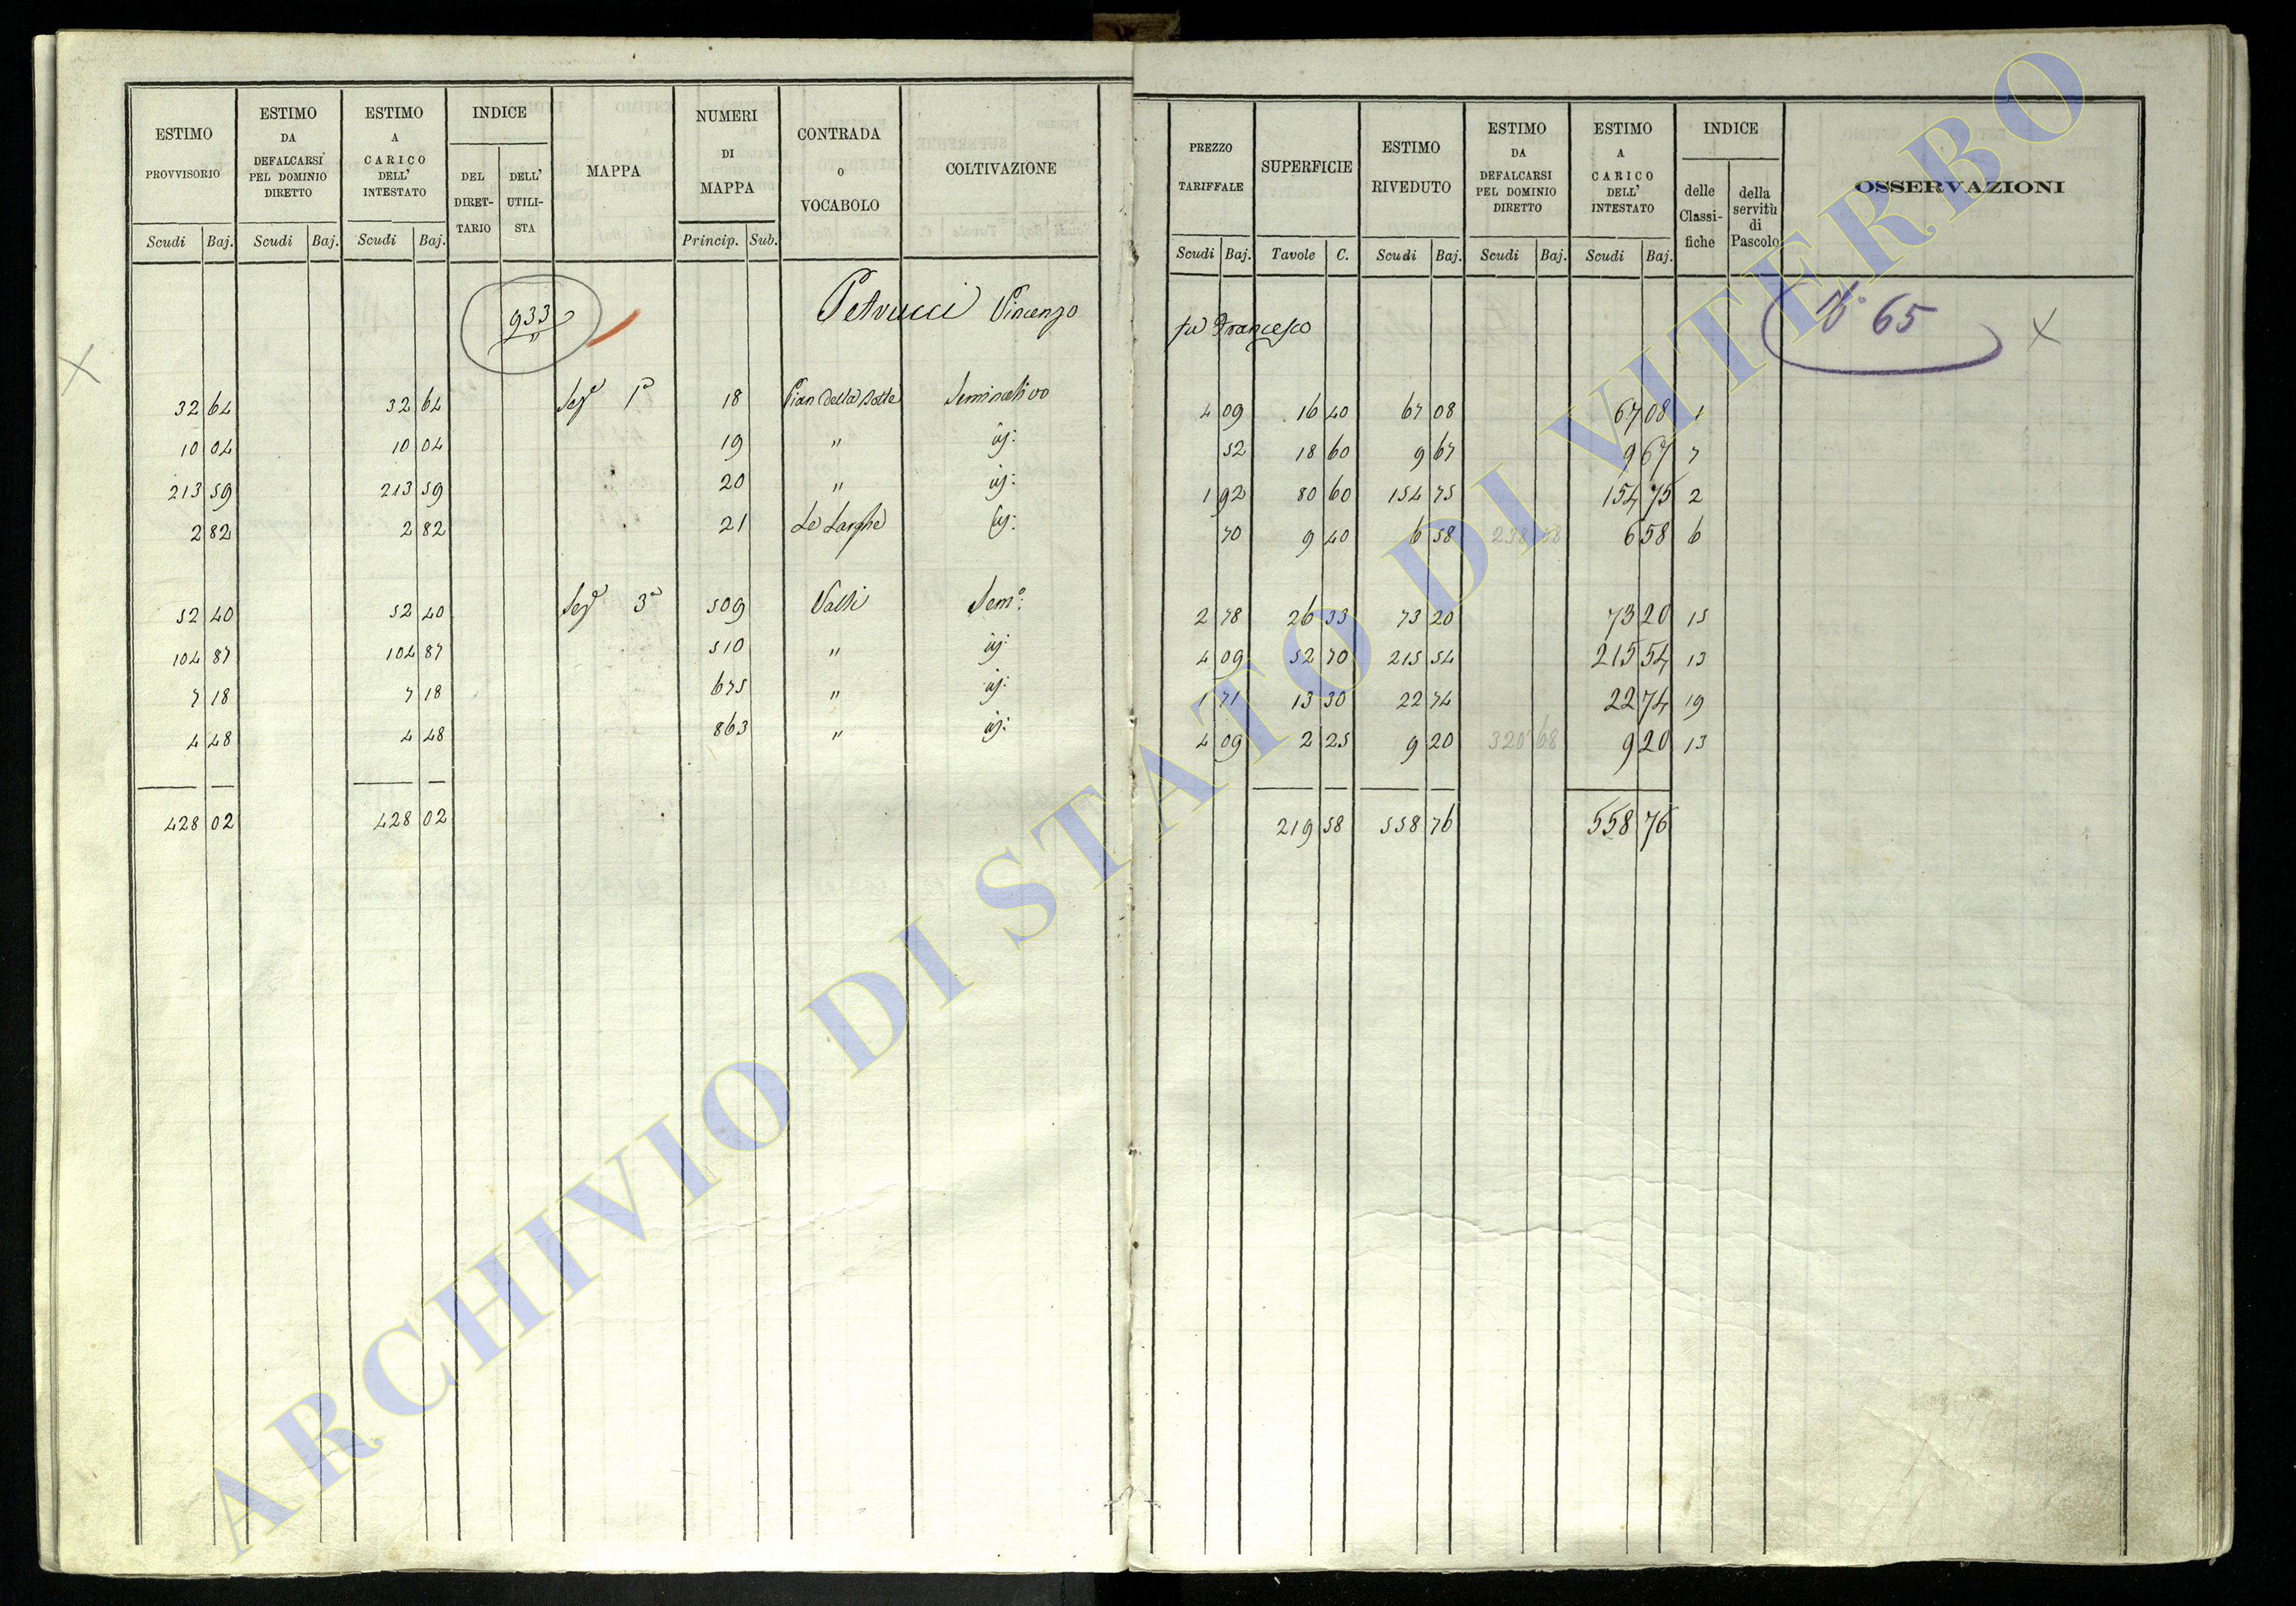 ESTIMO PROVVISORIO | ESTIMO DA DEFALCARSI PEL DOMINIO DIRETTO | ESTIMO A CARICO DELL' INTESTATO | INDICE DEL DIRETTARIO | DELL' UTILISTA | MAPPA | NUMERI DI MAPPA | CONTRADA O VOCABOLO | COLTIVAZIONE | PREZZO TARIFFALE | SUPERFICIE | ESTIMO RIVEDUTO | ESTIMO DA DEFALCARSI PEL DOMINIO DIRETTO | ESTIMO A CARICO DELL' INTESTATO | INDICE delle Classifiche | della servitù di Pascolo | OSSERVAZIONI
Scudi Baj. | Scudi Baj. | Scudi Baj. | Princip. Sub. | Scudi Baj. | Tavole C. | Scudi Baj. | Scudi Baj. | Scudi Baj.
933 Petrucci Vincenzo fu Francesco N° 65
32 64 | 32 64 | Sezᵉ 1ª | 18 | Pian della | Seminativo | 4 09 | 16 40 | 67 08 | 67 08 | 1
10 04 | 10 04 | 19 | " | | 52 | 18 60 | 9 67 | 9 67 | 7
213 59 | 213 59 | 20 | " | | 1 92 | 80 60 | 154 75 | 154 75 | 2
2 82 | 2 82 | 21 | Le Larghe | | 70 | 9 40 | 6 58 | 238 08 | 6 58 | 6
52 40 | 52 40 | Sezᵉ 3ª | 509 | Valli | Semº: | 2 78 | 26 33 | 73 20 | 73 20 | 15
104 87 | 104 87 | 510 | " | | 4 09 | 52 70 | 215 54 | 215 54 | 13
7 18 | 7 18 | 675 | " | | 1 71 | 13 30 | 22 74 | 22 74 | 19
4 48 | 4 48 | 863 | " | | 4 09 | 2 25 | 9 20 | 320 68 | 9 20 | 13
428 02 | 428 02 | 219 58 | 558 76 | 558 76
ARCHIVIO DI STATO DI VITERBO